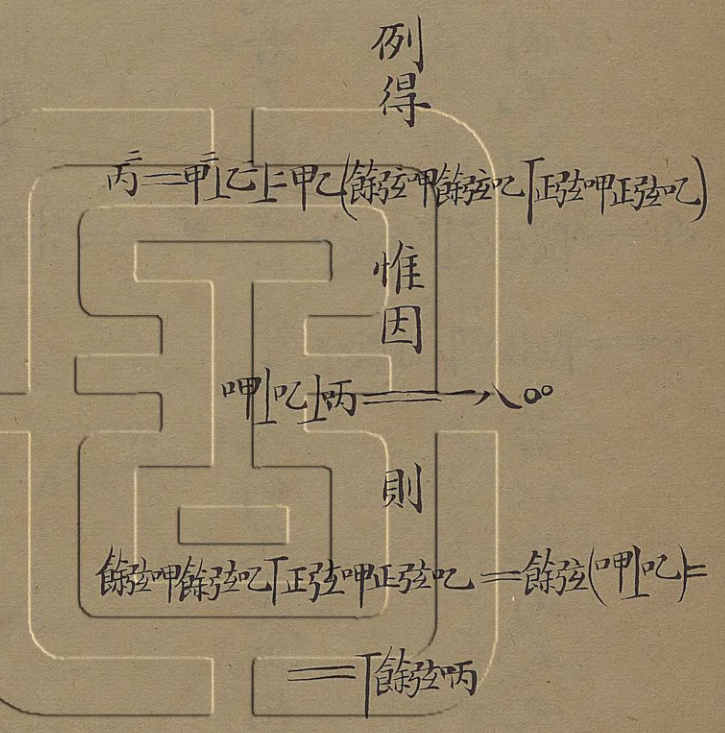 例
得
丙二=甲二⊥乙二⊥二甲乙(餘弦呷餘弦𠮙丅正弦呷正弦𠮙)
惟
因
呷⊥𠮙⊥㕂=一八〇°
則
餘弦呷餘弦𠮙丅正弦呷正弦𠮙=餘弦(呷⊥𠮙)=
=丅餘弦㕂